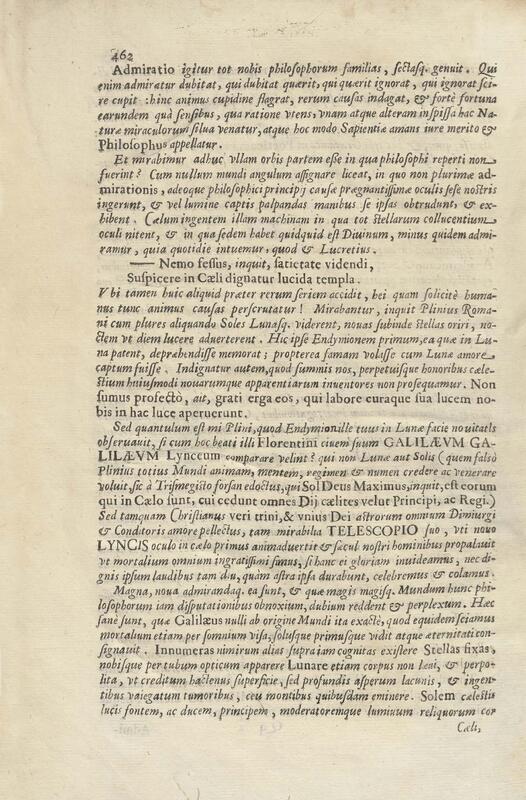 462
Admiratio igitur tot nobis philosophorum familias, sectasq. genuit. Qui
enim admiratur dubitat, qui dubitat quærit, qui quærit ignorat, qui ignorat sci-
re cupit: hinc animus cupidine flagrat, rerum causas indagat, & fortè fortuna
earundem quâ sensibus, qua ratione vtens, vnam atque alteram inspissa hac Na-
turæ miraculorum silua venatur, atque hoc modo Sapientiæ amans iure merito &
Philosophus appellatur.
Et mirabimur adhuc vllam orbis partem esse in qua philosophi reperti non
fuerint? Cum nullum mundi angulum assignare liceat, in quo non plurimæ ad-
mirationis, adeoque philosophici principij causæ prægnantissimæ oculis sese nostris
ingerunt, & vel lumine captis palpandas manibus se ipsas obtrudunt, & ex-
hibent. Cælum ingentem illam machinam in qua tot stellarum collucentium
oculi nitent, & in qua sedem habet quidquid est Diuinum, minus quidem admi-
ramur, quia quotidie intuemur, quod & Lucretius.
— Nemo fessus, inquit, satietate videndi,
Suspicere in Cæli dignatur lucida templa.
Vbi tamen huic aliquid præter rerum seriem accidit, hei quam solicitè huma-
nus tunc animus causas perscrutatur! Mirabantur, inquit Plinius Roma-
ni cum plures aliquando Soles Lunasq. viderent, nouas subinde stellas oriri, no-
ctem vt diem lucere aduerterent. Hic ipse Endymionem primum, ea quæ in Lu-
na patent, deprahendisse memorat; propterea famam volasse cum Lunæ amore
captum fuisse. Indignatur autem, quod summis nos, perpetuisque honoribus cæle-
stium huiusmodi nouarumque apparentiarum inuentores non prosequamur. Non
sumus profectò, ait, grati erga eos, qui labore curaque sua lucem no-
bis in hac luce aperuerunt.
Sed quantulum est mi Plini, quod Endymion ille tuus in Lunæ facie nouitatis
obseruauit, si cum hoc beati illi Florentini ciuem suum GALILÆVM GA-
LILÆVM Lynceum comparare velint? qui non Lunæ aut Solis (quem falsò
Plinius totius Mundi animam, mentem, regimen & numen credere ac venerare
voluit, sic à Trismegisto forsan edoctus, qui Sol Deus Maximus, inquit, est eorum
qui in Cælo sunt, cui cedunt omnes Dij cælites velut Principi, ac Regi.)
Sed tamquam Christianus veri trini, & vnius Dei astrorum omnium Dimiurgi
& Conditoris amore pellectus, tam mirabilia TELESCOPIO suo, vti nouo
LYNCIS oculo in cælo primus animaduertit & sæculi nostri hominibus propalauit
vt mortalium omnium ingratissimi simus, si hanc ei gloriam inuideamus, nec di-
gnis ipsum laudibus tam diu, quàm astra ipsa durabunt, celebremus & colamus.
Magna, noua admirandaq. ea sunt, & quæ magis magisq. Mundum hunc phi-
losophorum iam disputationibus obnoxium, dubium reddent & perplexum. Hæc
sanè sunt, quæ Galilæus nulli ab origine Mundi ita exactè, quod equidem sciamus
mortalium etiam per somnium visa, solusque primusque vidit atque æternitati con-
signauit. Innumeras nimirum alias supra iam cognitas existere Stellas fixas,
nobisque per tubum opticum apparere Lunare etiam corpus non leui, & perpo-
lita, vt creditum hactenus superficie, sed profundis asperum lacunis, & ingen-
tibus vaiegatum tumoribus, ceu montibus quibusdam eminere. Solem cælestis
lucis fontem, ac ducem, principem, moderatoremque luminum reliquorum cor
Cæli,